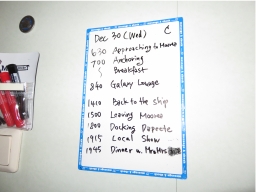 Dec 30 (Wed) C
630 Approaching to Moorea
700 Anchoring
Breakfast
840 Galaxy Lounge
1410 Back to the ship
1500 Leaving Moorea
1800 Docking Papeete
1915 Local Show
1945 Dinner w. Mr&Mrs